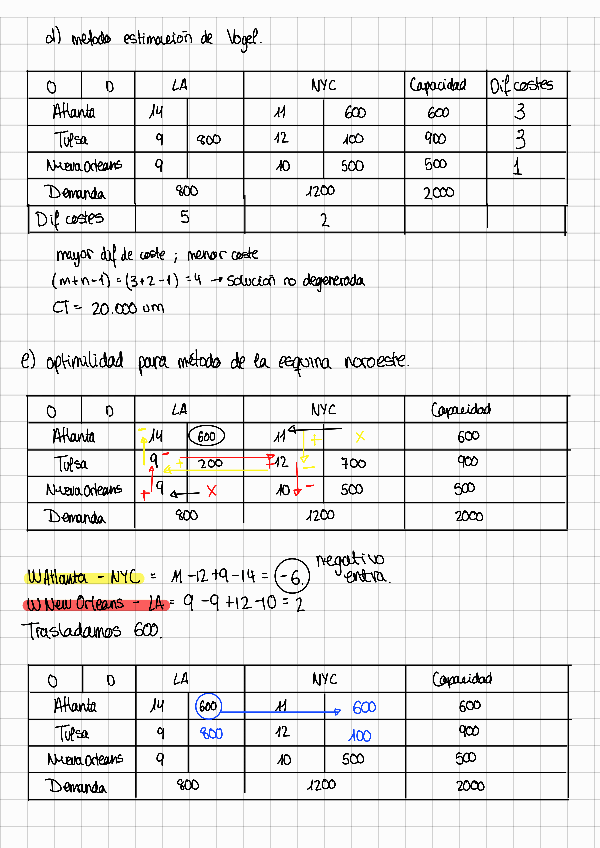 d) método estimación de Vogel.
O D LA NYC Capacidad Dif costes
Atlanta 14 11 600 600 3
Tulsa 9 800 12 100 900 3
Nueva Orleans 9 10 500 500 1
Demanda 800 1200 2000
Dif costes 5 2
mayor dif de coste ; menor coste
(m+n-1) = (3+2-1) = 4 → solución no degenerada
CT = 20.000 um
e) optimilidad para método de la esquina noroeste.
O D LA NYC Capacidad
Atlanta - 14 600 11 + x 600
Tulsa 9 - + 200 + 12 - 700 900
Nueva Orleans + 9 x 10 - 500 500
Demanda 800 1200 2000
W Atlanta - NYC = 11 -12 +9 -14 = -6 negativo entra.
W New Orleans - LA = 9 -9 +12 -10 = 2
Trasladamos 600.
O D LA NYC Capacidad
Atlanta 14 600 11 600 600
Tulsa 9 800 12 100 900
Nueva Orleans 9 10 500 500
Demanda 800 1200 2000